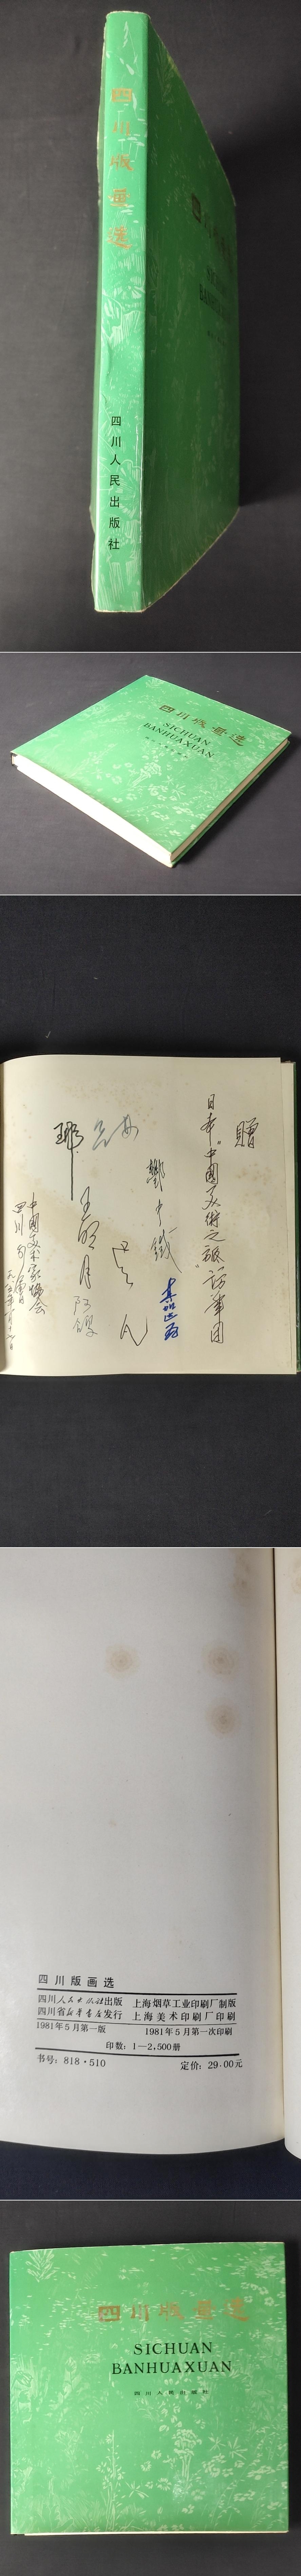 四川版画选
四川人民出版社
四川版画选
SICHUAN
BANHUAXUAN
赠
日本"中国美术之旅"访华团
中国美术家协会
四川分会
四川版画选
四川人民出版社出版 上海烟草工业印刷厂制版
四川省新华书店发行 上海美术印刷厂印刷
1981年5月第一版 1981年5月第一次印刷
印数：1—2,500册
书号：818·510 定价：29.00元
四川版画选
SICHUAN
BANHUAXUAN
四川人民出版社